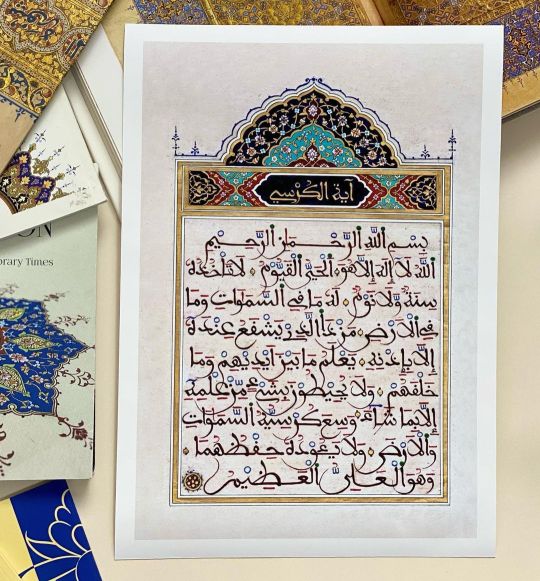 آية الكرسي
بِسْمِ اللَّهِ الرَّحْمَٰنِ الرَّحِيمِ
اللَّهُ لَا إِلَٰهَ إِلَّا هُوَ الْحَيُّ الْقَيُّومُ لَا تَأْخُذُهُ
سِنَةٌ وَلَا نَوْمٌ لَهُ مَا فِي السَّمَٰوَاتِ وَمَا
فِي الْأَرْضِ مَنْ ذَا الَّذِي يَشْفَعُ عِنْدَهُ
إِلَّا بِإِذْنِهِ يَعْلَمُ مَا بَيْنَ أَيْدِيهِمْ وَمَا
خَلْفَهُمْ وَلَا يُحِيطُونَ بِشَيْءٍ مِنْ عِلْمِهِ
إِلَّا بِمَا شَاءَ وَسِعَ كُرْسِيُّهُ السَّمَٰوَاتِ
وَالْأَرْضَ وَلَا يَئُودُهُ حِفْظُهُمَا
وَهُوَ الْعَلِيُّ الْعَظِيمُ
Times